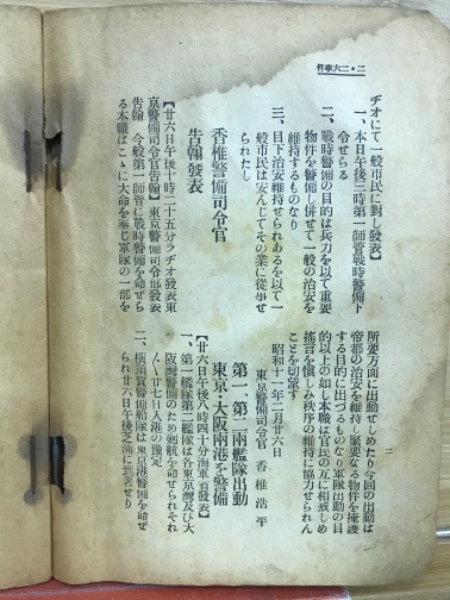 二・二六事件
ヂオにて一般市民に對し發表】
一、本日午後三時第一師管戰時警備下
令せらる
二、戰時警備の目的は兵力を以て重要
物件を警備し併せて一般の治安を
維持するものなり
三、目下治安維持せられあるを以て一
般市民は安んじてその業に從事せ
られたし
香椎警備司令官
告翰發表
【廿六日午後十時二十五分ラヂオ發表東
京警備司令官告翰】東京警備司令部發表
告翰 今般第一師管に戰時警備を命ぜら
る本職はこゝに大命を奉じ軍隊の一部を
所要方面に出動せしめたり今回の出動は
帝都の治安を維持し緊要なる物件を掩護
する目的に出づるものなり軍隊出動の目
的以上の如し本職は官民の互に相戒しめ
謠言を愼しみ秩序の維持に協力せられん
ことを切望す
昭和十一年二月廿六日
東京警備司令官 香椎浩平
第一、第二兩艦隊出動
東京・大阪兩港を警備
【廿六日午後八時四十分海軍省發表】
一、第一艦隊第二艦隊は各東京灣及び大
阪灣警備のため囘航を命ぜられそれ
〴〵廿七日入港の豫定
二、橫須賀警備艦隊は東京港警備を命ぜ
られ廿六日午後芝浦に到著せり
二